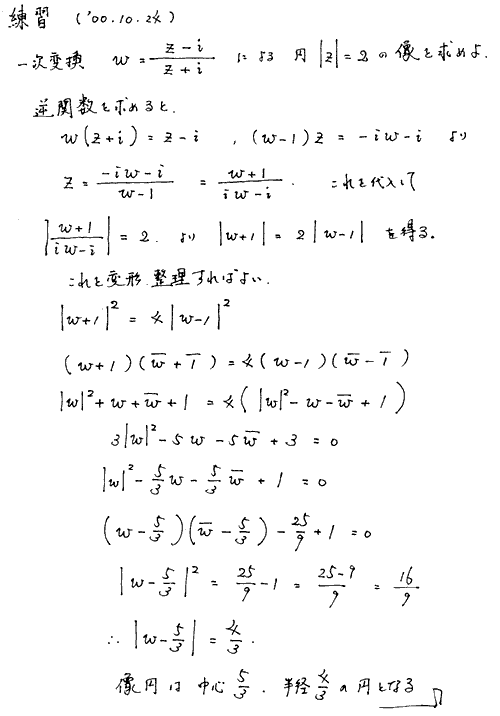 練習 ('00.10.24)
一次変換 w = (z-i)/(z+i) による 円 |z| = 2 の像を求めよ.
逆関数を求めると.
w(z+i) = z-i , (w-1)z = -iw-i より
z = (-iw-i)/(w-1) = (w+1)/(iw-i) . これを代入して
|(w+1)/(iw-i)| = 2. より |w+1| = 2|w-1| を得る。
これを変形.整理すればよい.
|w+1|² = 4|w-1|²
(w+1)(w̅+1̅) = 4(w-1)(w̅-1̅)
|w|²+w+w̅+1 = 4(|w|²-w-w̅+1)
3|w|²-5w-5w̅+3 = 0
|w|²-5/3w-5/3w̅+1 = 0
(w-5/3)(w̅-5/3)-25/9+1 = 0
|w-5/3|² = 25/9-1 = (25-9)/9 = 16/9
∴ |w-5/3| = 4/3.
像円は 中心 5/3 . 半径 4/3 の円となる